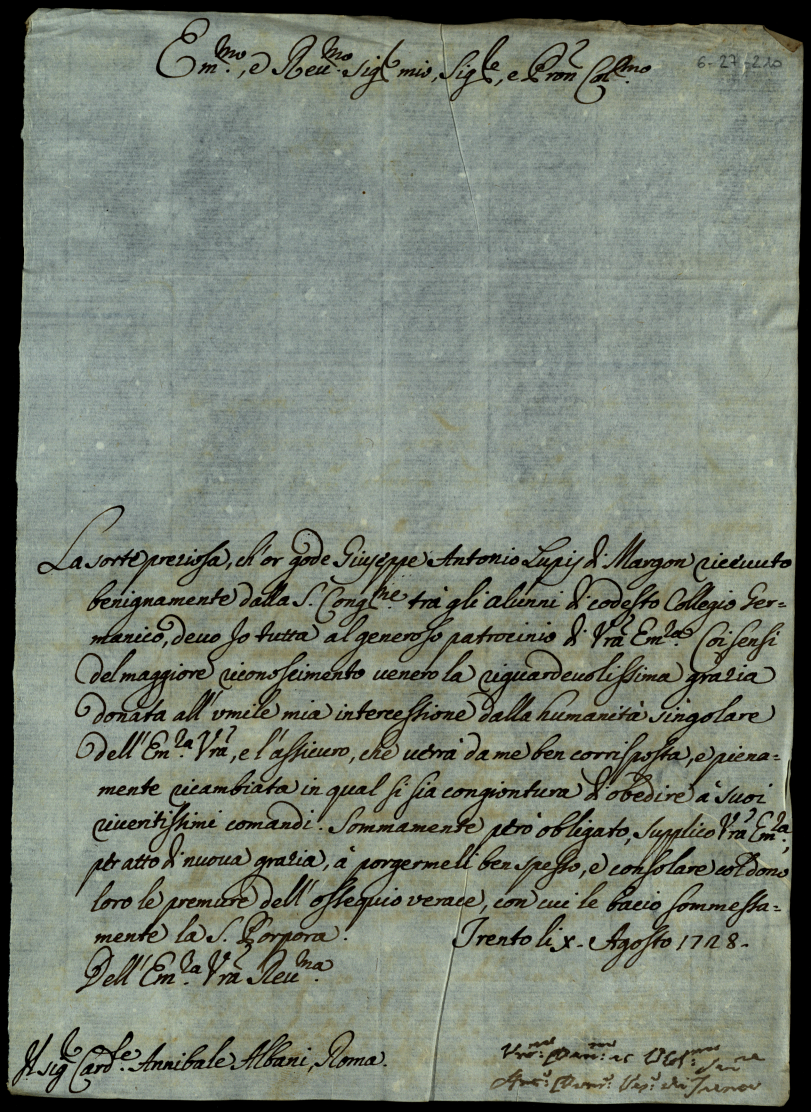 Em.mo, e Reu.mo Sig.r mio, Sig.re, e Pron Col.mo
6-27-210
La sorte preziosa, ch'or gode Giuseppe Antonio Lupis di Margon riceuuto
benignamente dalla S. Cong.ne trà gli alunni di codesto Collegio Ger=
manico, deuo Jo tutta al generoso patrocinio di Vrã Em.za. Coi sensi
del maggiore riconoscimento venero la riguardeuolissima grazia
donata all'vmile mia intercessione dalla humanità singolare
dell'Em.za Vrã, e l'assicuro, che uerrà da me ben corrisposta, e piena=
mente ricambiata in qual si sia congiontura d'obedire à suoi
riueritissimi comandi. Sommamente però obligato, supplico Vrã Em.za,
per atto di nuoua grazia, à porgermeli ben spesso, e consolare col dono
loro le premure dell'ossequio verace, con cui le bacio sommessa=
mente la S. Porpora. Trento li x. Agosto 1728.
Dell'Em.za Vrã Reu.ma
Il Sig.r Card.le Annibale Albani, Roma.